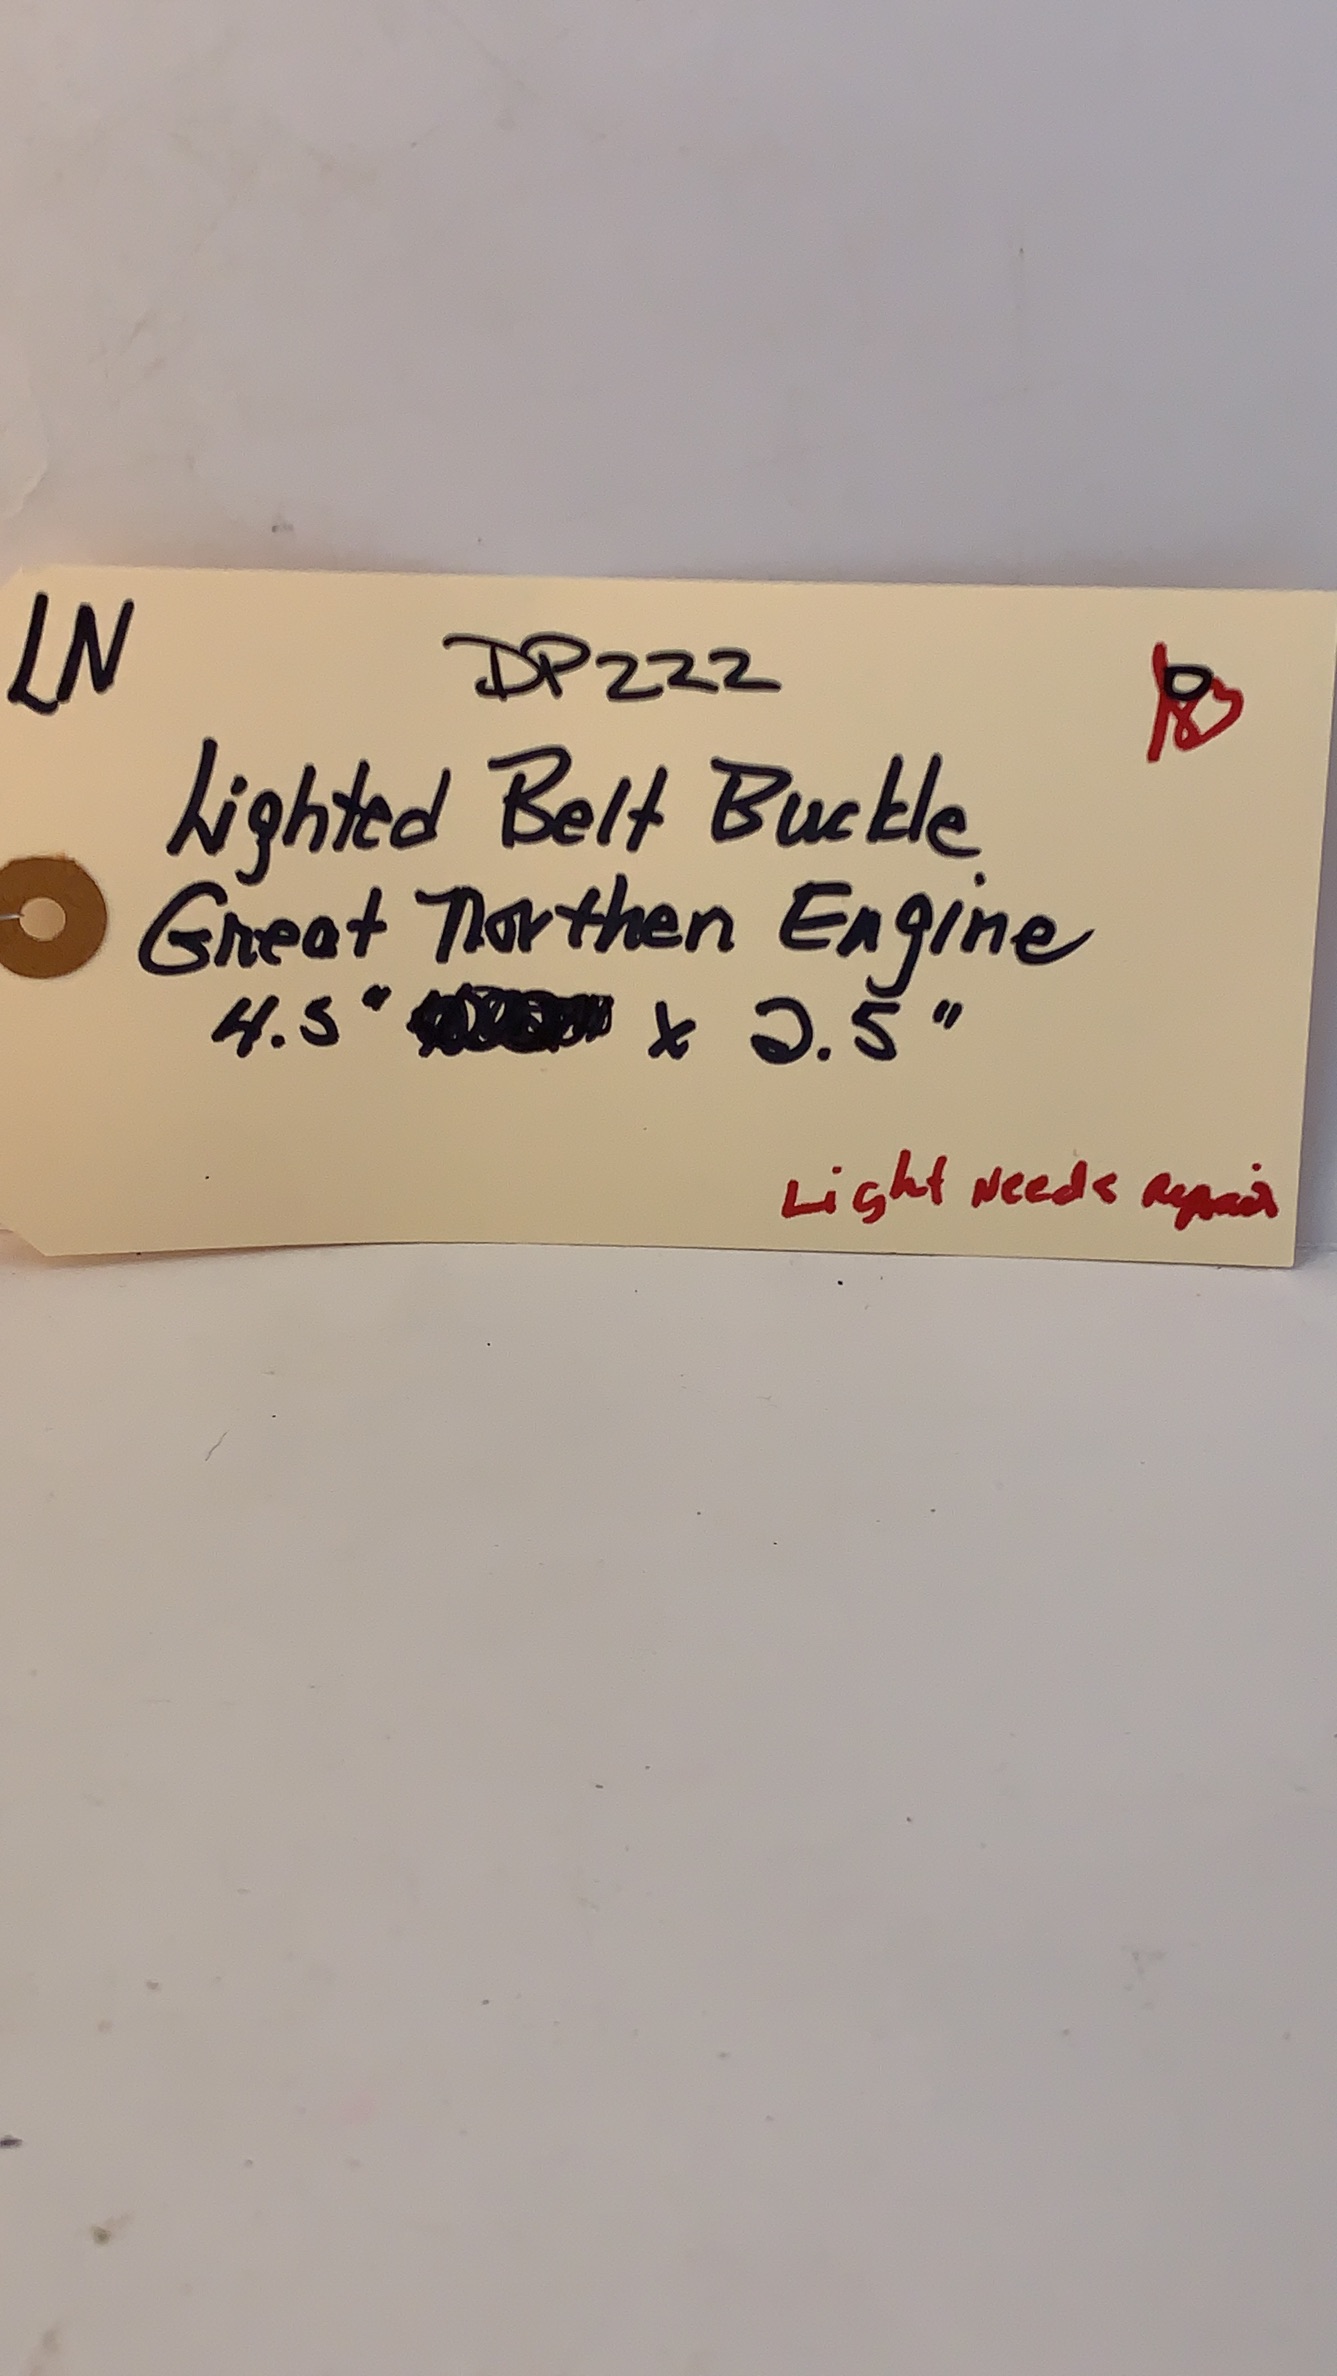 LN
DP222
Lighted Belt Buckle
Great Northen Engine
4.5" x 2.5"
Light Needs repair